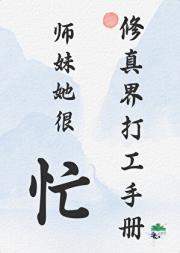 修真界打工手册
师妹她很忙